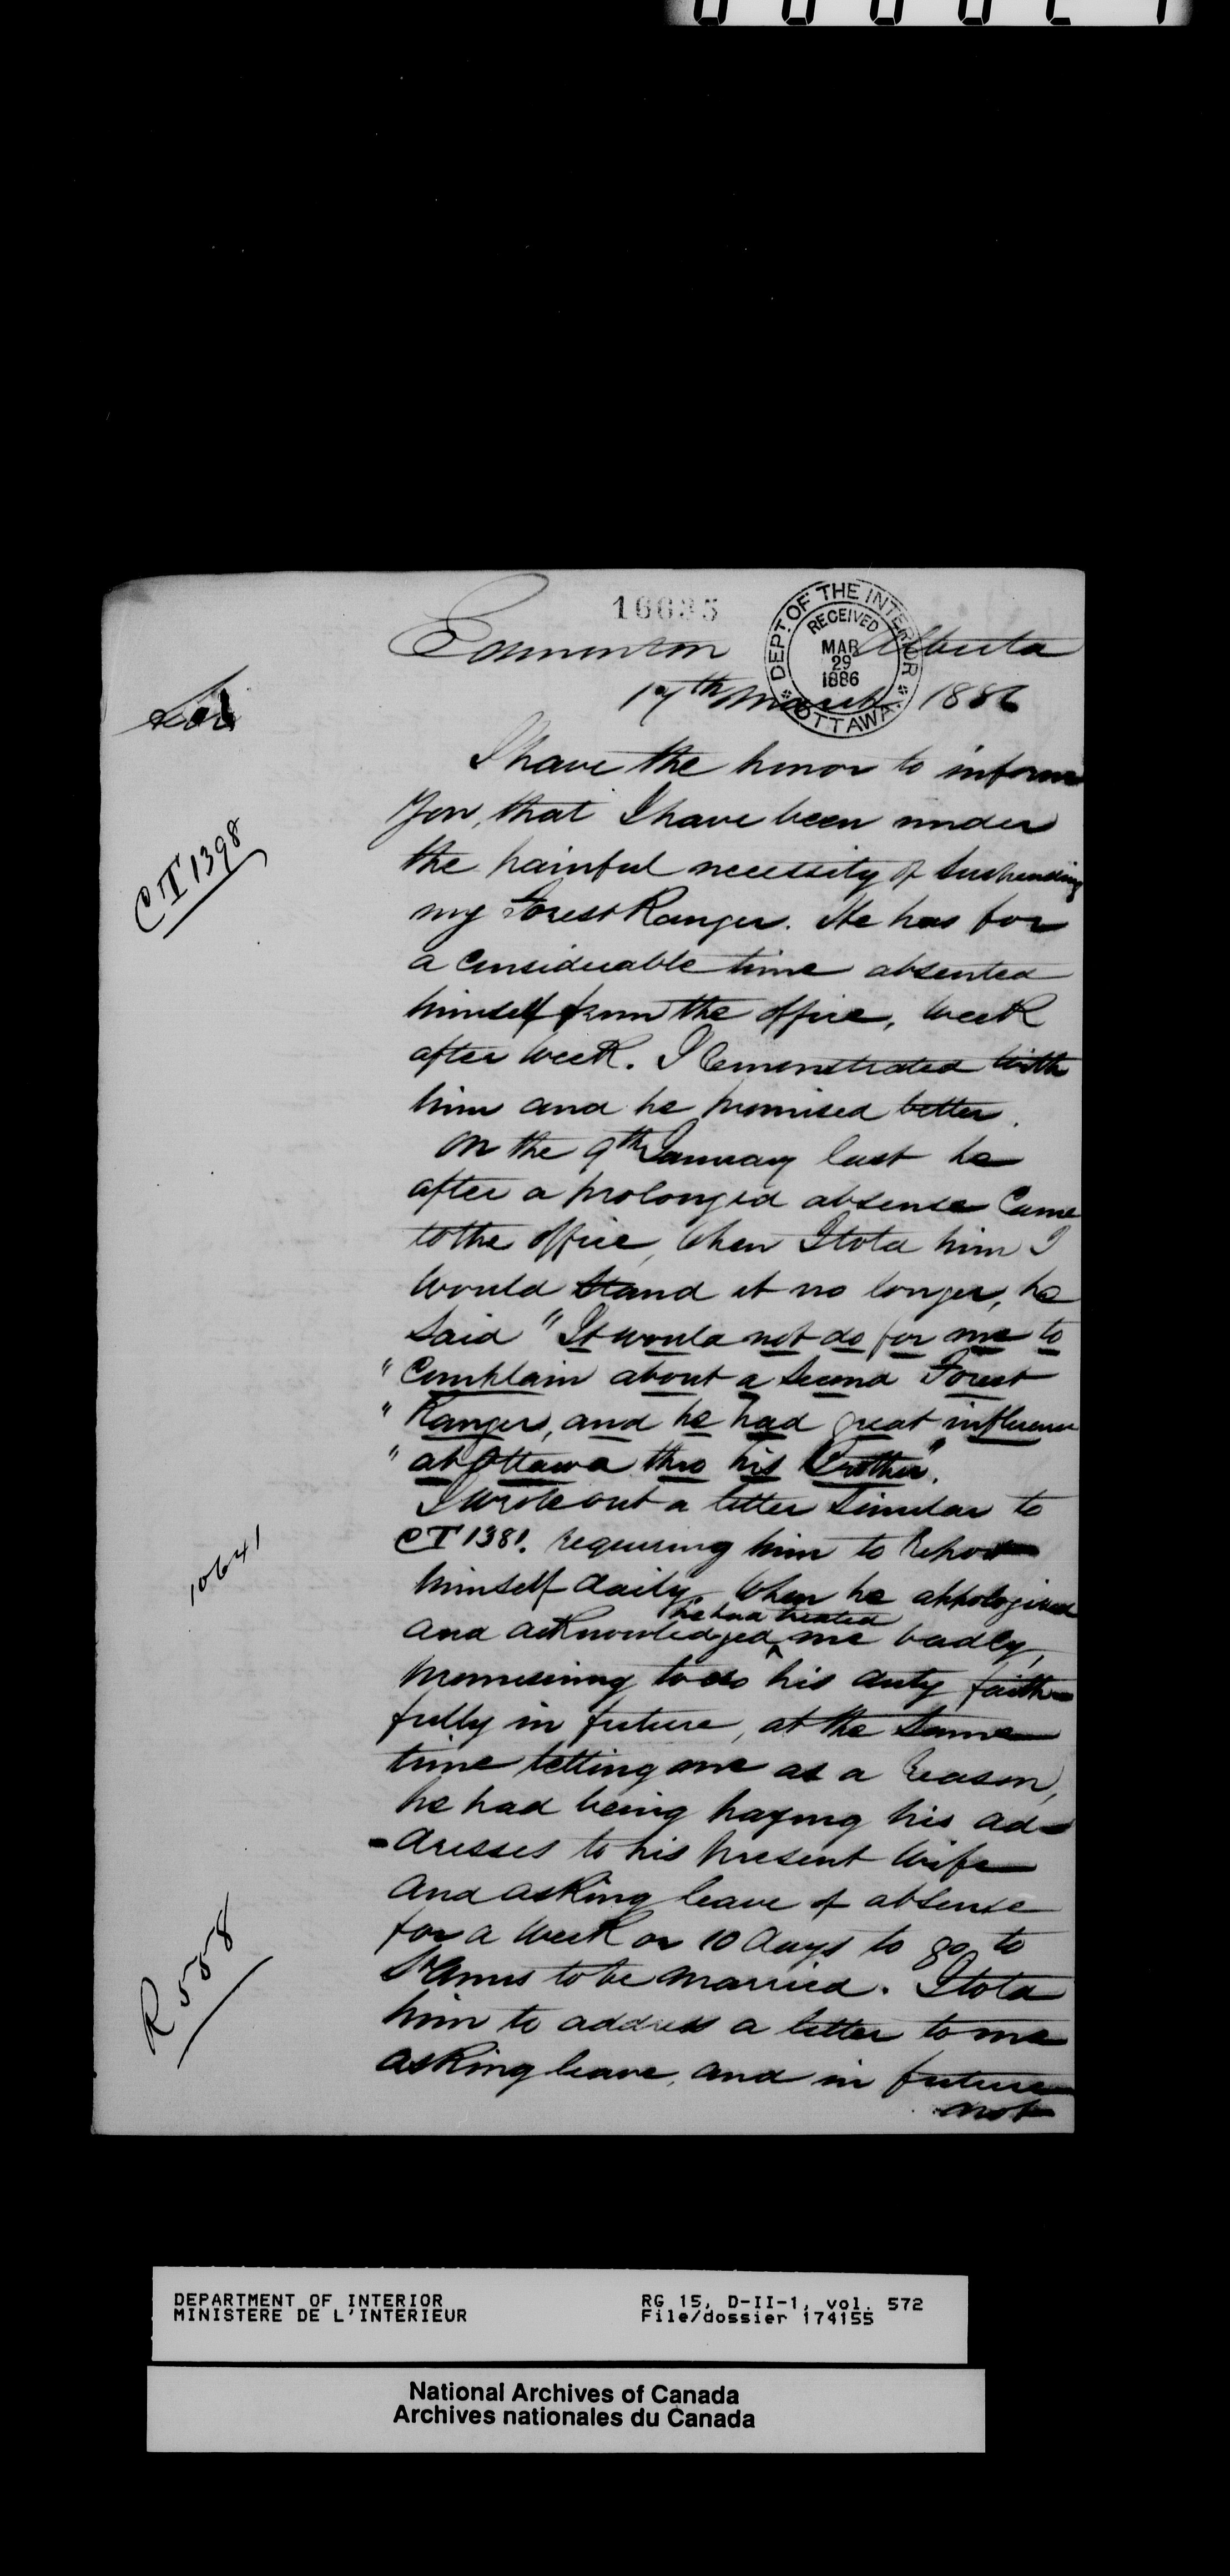 16635
DEPT. OF THE INTERIOR
RECEIVED
MAR
29
1886
OTTAWA
Edmonton Alberta
17th March 1886
Sir
I have the honor to inform
you, that I have been under
the painful necessity of suspending
my Forest Ranger. He has for
a considerable time absented
himself from the office, week
after week. I remonstrated with
him and he promised better.
On the 9th January last he
after a prolonged absence came
to the office, when I told him I
would stand it no longer, he
said "It would not do for me to
" complain about a second Forest
" Ranger, and he had great influence
" at Ottawa thro his Brother".
I wrote out a letter similar to
CT 1381. requiring him to report
himself daily, when he appologised
and acknowledged he had treated me badly,
promising to do his duty faith-
fully in future, at the same
time telling me as a reason,
he had being paying his ad-
-dresses to his present wife
and asking leave of absence
for a week or 10 days to go to
St Anns to be married. I told
him to address a letter to me
asking leave, and in future
not
CT 1398
10641
R 558
DEPARTMENT OF INTERIOR
MINISTERE DE L'INTERIEUR
RG 15, D-II-1, vol. 572
File/dossier 174155
National Archives of Canada
Archives nationales du Canada